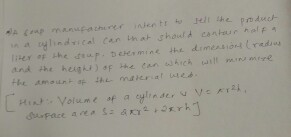 *A soup manufacturer intents to sell the product
in a cylindrical can that should contain half a
liter of the soup. Determine the dimensions (radius
and the height) of the can which will minimize
the amount of the material used.
[Hint:- Volume of a cylinder is V = πr²h,
Surface area S = 2πr² + 2πrh]